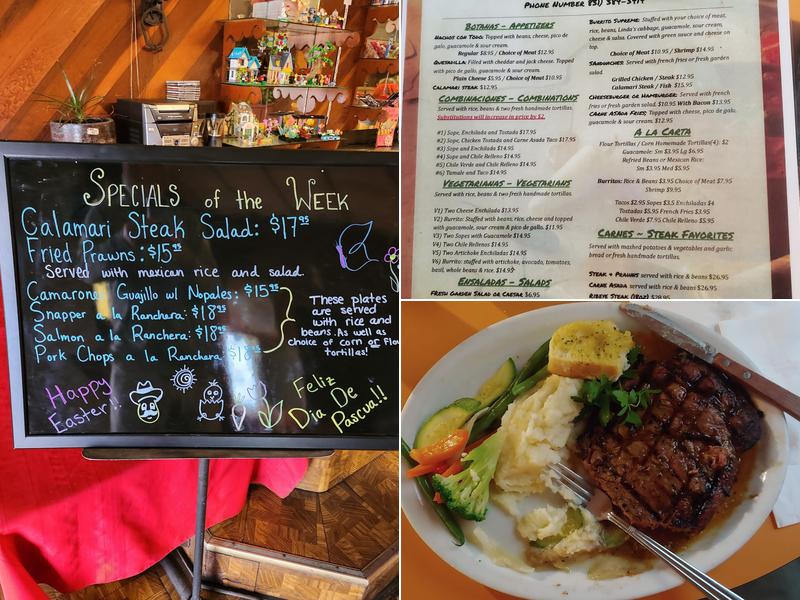 SPECIALS of the WEEK
Calamari Steak Salad: $17.95
Fried Prawns: $15.95
Served with mexican rice and salad.
Camarones Guajillo w/ Nopales: $15.95
Snapper a la Ranchera: $18.95
Salmon a la Ranchera: $18.95
Pork Chops a la Ranchera: $18.95
These plates
are served
with rice and
beans. As well as
choice of corn or
tortillas!
Happy
Easter!!
Feliz
Dia De
Pascua!!
PHONE NUMBER 831)
BOTANAS - APPETIZERS
NACHOS CON TODO: Topped with beans, cheese, pico de
galo, guacamole & sour cream.
Regular $8.95 / Choice of Meat $12.95
QUESADILLA: Filled with cheddar and jack cheese. Topped
with pico de gallo, guacamole & sour cream.
Plain Cheese $5.95 / Choice of Meat $10.95
CALAMARI STEAK $12.95
COMBINACIONES - COMBINATIONS
Served with rice, beans & two fresh handmade tortillas.
Substitutions will increase in price by $2.
#1) Sope, Enchilada and Tostada $17.95
#2) Sope, Chicken Tostada and Carne Asada Taco $17.95
#3) Sope and Enchilada $14.95
#4) Sope and Chile Relleno $14.95
#5) Chile Verde and Chile Relleno $16.95
#6) Tamale and Taco $14.95
VEGETARIANAS - VEGETARIANS
Served with rice, beans & two fresh handmade tortillas.
V1) Two Cheese Enchilada $13.95
V2) Burrito: Stuffed with beans, rice, cheese and topped
with guacamole, sour cream & pico de gallo. $11.95
V3) Two Sopes with Guacamole $14.95
V4) Two Chile Rellenos $14.95
V5) Two Artichoke Enchiladas $14.95
V6) Burrito: stuffed with artichoke, avocado, tomatoes,
basil, whole beans & rice. $14.95
ENSALADAS - SALADS
FRESH GARDEN SALAD OR CAESAR $6.95
BURRITO SUPREME: Stuffed with your choice of meat,
rice, beans, Linda's cabbage, guacamole, sour cream,
cheese & salsa. Covered with green sauce and cheese on
top.
Choice of Meat $10.95 / Shrimp $14.95
SANDWICHES: Served with french fries or fresh garden
salad.
Grilled Chicken / Steak $12.95
Calamari Steak / Fish $15.95
CHEESEBURGER OR HAMBURGER: Served with french
fries or fresh garden salad. $10.95 With Bacon $13.95
CARNE ASADA FRIES: Topped with cheese, pico de galo,
guacamole & sour cream. $12.95
A LA CARTA
Flour Tortillas / Corn Homemade Tortillas(4): $2
Guacamole: Sm $3.95 Lg $6.95
Refried Beans or Mexican Rice:
Sm $3.95 Med $5.95
Burritos: Rice & Beans $3.95 Choice of Meat $7.95
Shrimp $9.95
Tacos $2.95 Sopes $3.5 Enchiladas $4
Tostadas $5.95 French Fries $3.95
Chile Verde $7.95 Chile Relleno $5.95
CARNES - STEAK FAVORITES
Served with mashed potatoes & vegetables and garlic
bread or fresh handmade tortillas.
STEAK & PRAWNS served with rice & beans $26.95
CARNE ASADA served with rice & beans $26.95
RIBEYE STEAK (18oz) $28.95